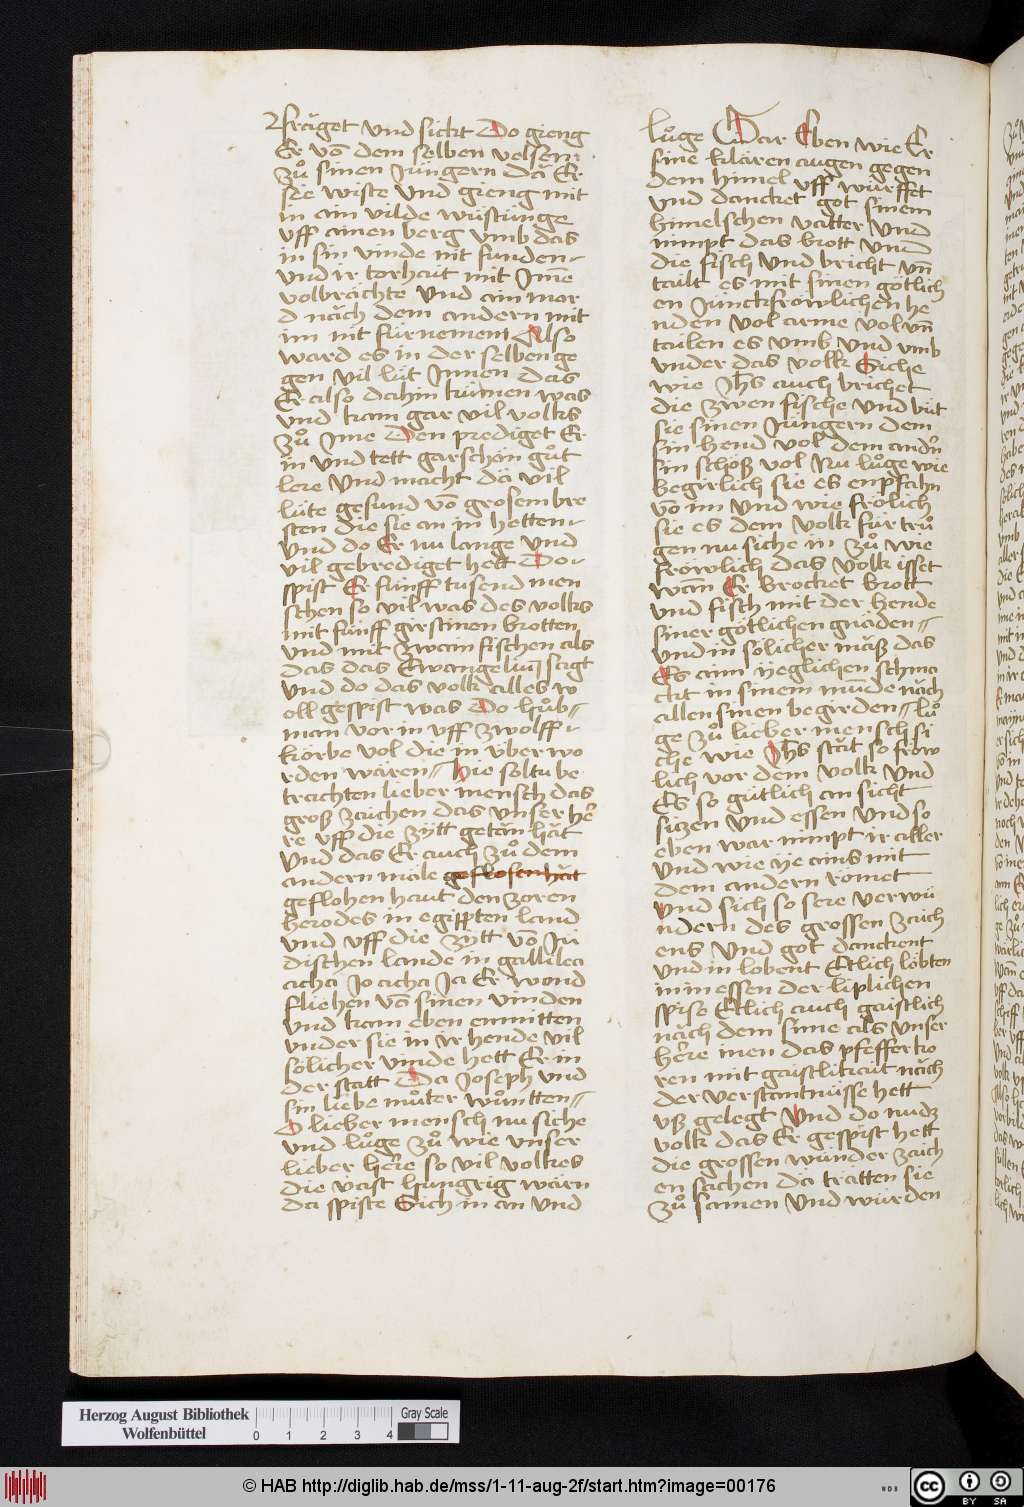 fräget vnd sickt Do gieng
Er võ dem selben velsem
zů sinen Jüngern dä Er
sie wiste Vnd gieng mit
in ain vilde wüstünge
vff ainen berg vmb das
in sin vinde nit funden
vnd ir torhait mit Jme
volbrächte Vnd ain mor
d näch dem andern mit
im nit fürnemem Also
ward es in der selben ge
gen vil lüt Jnnen das
Er also dahin kümen was
vnd kam gar vil volks
zů Jme Den prediget Er
in vnd tett garschön gůt
lere Vnd macht dä vil
lüte gesund võ grosem bre
sten die sie an in hetten
Vnd do Er nu lange Vnd
vil gebrediget hett Do
spist Er fünff tusend men
schen so vil was des volks
mit fünff girstinen brotten
vnd mit zwain fischen als
das das Ewangeliu͂ sagt
Vnd do das volk alles w
oll gespist was Do hůb=
man vor in vff zwolff
körbe vol die in über wo
rden wären= Hie soltu be
trachten lieber mensch das
groß zaichen das vnser he͂r
re vff die zÿtt getän hät
vnd das Er auch zů dem
andern mäle geflosen hät
geflohen haut den zoren
herodes in egipten land
vnd vff die zÿtt võ Jü
dischen lande in gallilea
acha Jo acha Ja Er wond
fliehen vä sinen vinden
vnd kam eben enmitten
vnder sie in ir hende vil
sölicher vinde hett Er in
der statt Da Joseph vnd
sin liebe můter wůntten=
O lieber mensch nu siche
vnd lůge zů wie vnser
lieber he͂re so vil volkes
die vast hungrig wärn
da spiste Sich in an vnd
lůge War Eben wie Er
sine klären augen gegen
dem himel vff würffet
vnd dancket got sinem
himelschen vatter Vnd
nimpt das brott Vnd
die fisch Vnd bricht vn͂
tailt es mit sinen götlich
en Jünckfrowlichen he
nden vol arme vol vn͂
tailen es vmb Vnd vmb
vnder das volk Siche
wie Jhs auch brichet
die zwen fische Vnd büt
sie sinen Jüngern dem
sin hend vol dem and͂n
sin schöß vol Nu lůge wie
begirlich sie es enpfahn
võ im Vnd wie frölich
sie es dem volk für trů
gen nu siche in zů wie
frowlich das volk isset
wan͂ Er brocket brott
vnd fisch mit der hende
siner götlichen gnäden=
vnd in sölicher mäß das
Es aim ÿeglichen schma
ckt in sinem mu͂de näch
allen sinen begirden= lů
ge zů lieber mensch si
che wie Jhs stät so frow
lich vor dem volk Vnd
Es so gütlich an sicht
siczen Vnd essen Vnd so
eben war nimpt ir aller
Vnd wie ÿe ains mit
dem andern römet
Vnd sich so sere verwü
ndern des grossen zaich
ens Vnd got danckent
vnd in lobent Etlich löbten
in in essen der liplichen
spise Etlich auch gaistlich
näch dem sinne als vnser
he͂re inen das pfeffer ko
ren mit gaistlikait näch
der verstantnüsse hett
vß gelegt Vnd do nu dz
volk das Er gespist hett
die grossen wünder zaich
en sachen da tratten sie
zů samen Vnd würden
Herzog August Bibliothek
Wolfenbüttel
0 1 2 3 4
Gray Scale
© HAB http://diglib.hab.de/mss/1-11-aug-2f/start.htm?image=00176
WDB
cc BY SA